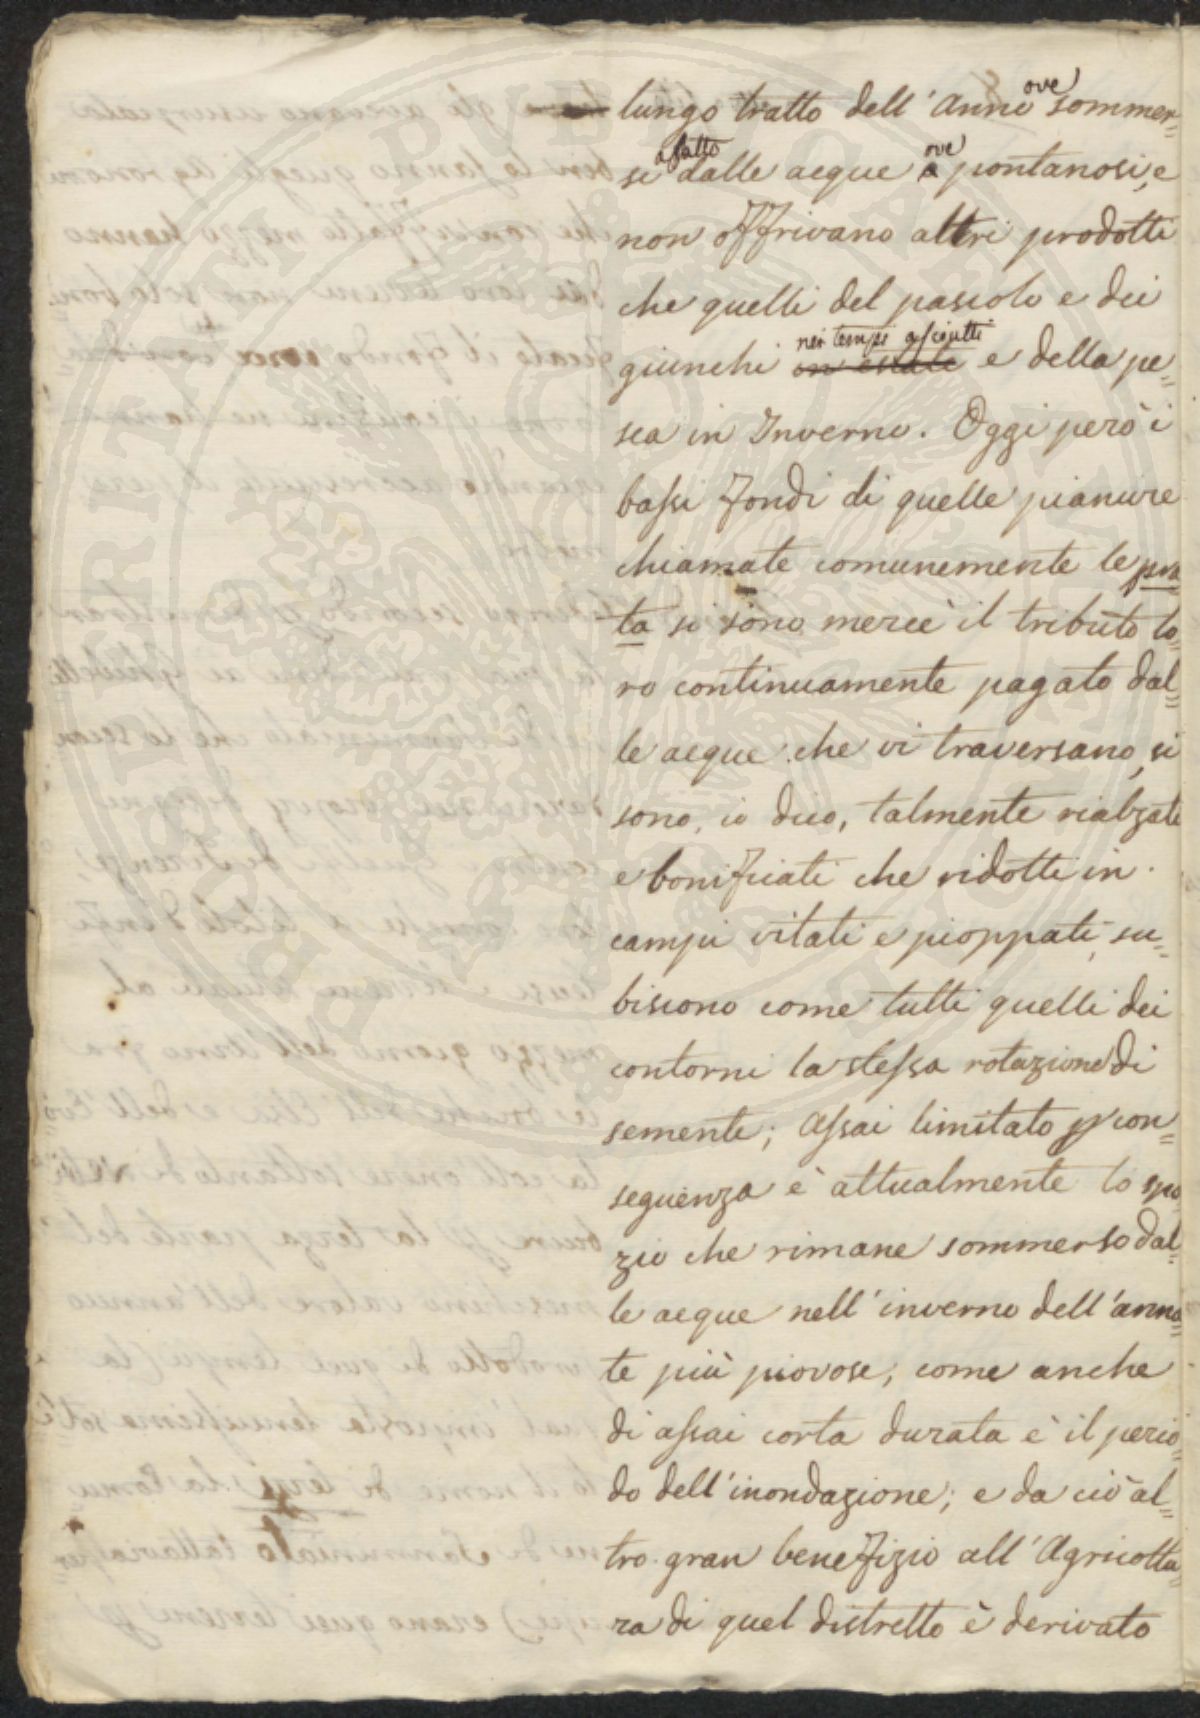 lungo tratto dell'Anno ove sommer=
si affatto dalle acque ove pontanosi, e
non offrivano altri prodotti
che quelli del pascolo e dei
giunchi nei tempi asciutti in estate e della pe=
sca in Inverno. Oggi però i
bassi fondi di quelle pianure
chiamate comunemente le pra
ta si sono mercè il tributo lo
ro continuamente pagato dal=
le acque che vi traversano, si
sono, io dico, talmente rialzati
e bonificati che ridotti in
campi vitati e pioppati, su=
biscono come tutti quelli dei
contorni la stessa rotazione di
sementi; Assai limitato p con=
seguenza è attualmente lo spa
zio che rimane sommerso dal=
le acque nell'inverno dell'anna=
te più piovose, come anche
di assai corta durata è il perio=
do dell'inondazione; e da ciò al=
tro gran benefizio all'Agricoltu=
ra di quel distretto è derivato